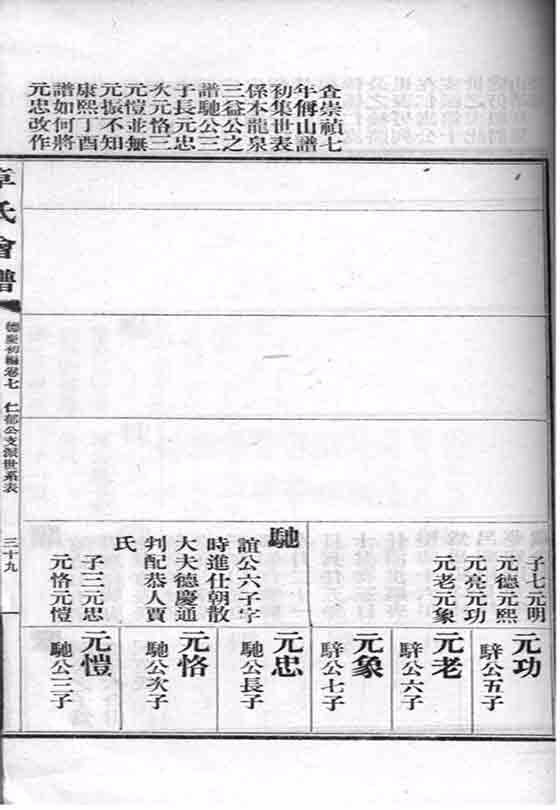 查崇禎七
年偁山譜
初集世表
係本龍泉
三益公之
譜馳公三
子長元忠
次元恪三
元愷並無
元振不知
康熙丁酉
譜如何將
元忠改作
子七元明
元德元熙
元亮元功
元老元象
馳
誼公六子字
時進仕朝散
大夫德慶通
判配恭人賈
氏
子三元忠
元恪元愷
元功
騂公五子
元老
騂公六子
元象
騂公七子
元忠
馳公長子
元恪
馳公次子
元愷
馳公三子
章氏會譜
德慶初編卷七
仁郁公支派世系表
三十九